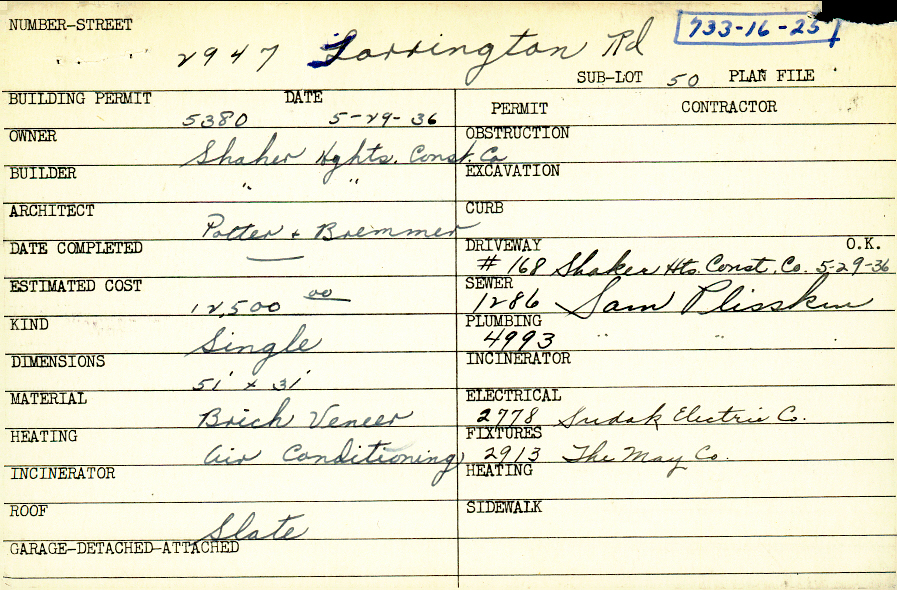 NUMBER-STREET
2947 Torrington Rd
733-16-25
SUB-LOT 50 PLAN FILE
BUILDING PERMIT DATE
5380 5-29-36
PERMIT CONTRACTOR
OWNER
Shaker Hghts. Const. Co
OBSTRUCTION
BUILDER
" "
EXCAVATION
ARCHITECT
Potter + Bremmer
CURB
DATE COMPLETED
—
DRIVEWAY O.K.
# 168 Shaker Hts. Const. Co. 5-29-36
ESTIMATED COST
12,500 00
SEWER
1286 Sam Plisskin
KIND
Single
PLUMBING
4993 " "
DIMENSIONS
51' x 31'
INCINERATOR
MATERIAL
Brick Veneer
ELECTRICAL
2778 Sudak Electric Co.
HEATING
Air Conditioning
FIXTURES
2913 The May Co.
INCINERATOR
HEATING
ROOF
Slate
SIDEWALK
GARAGE-DETACHED-ATTACHED